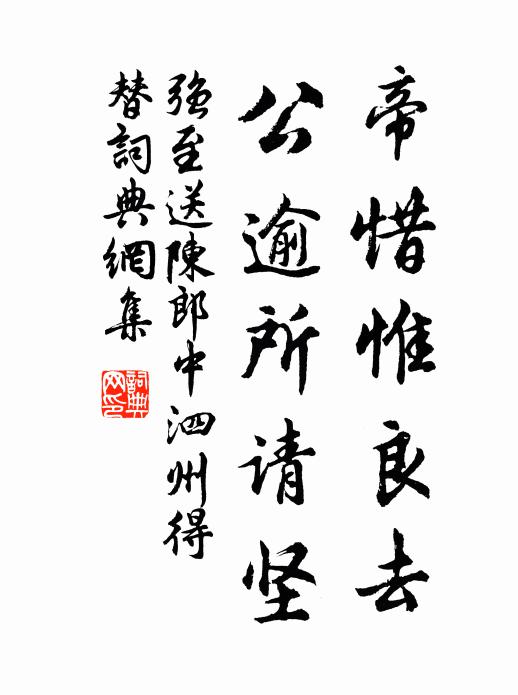 帝惜惟良去
公逾所请坚
強至送陳郎中泗州得
替詞典網集
詞典
网印